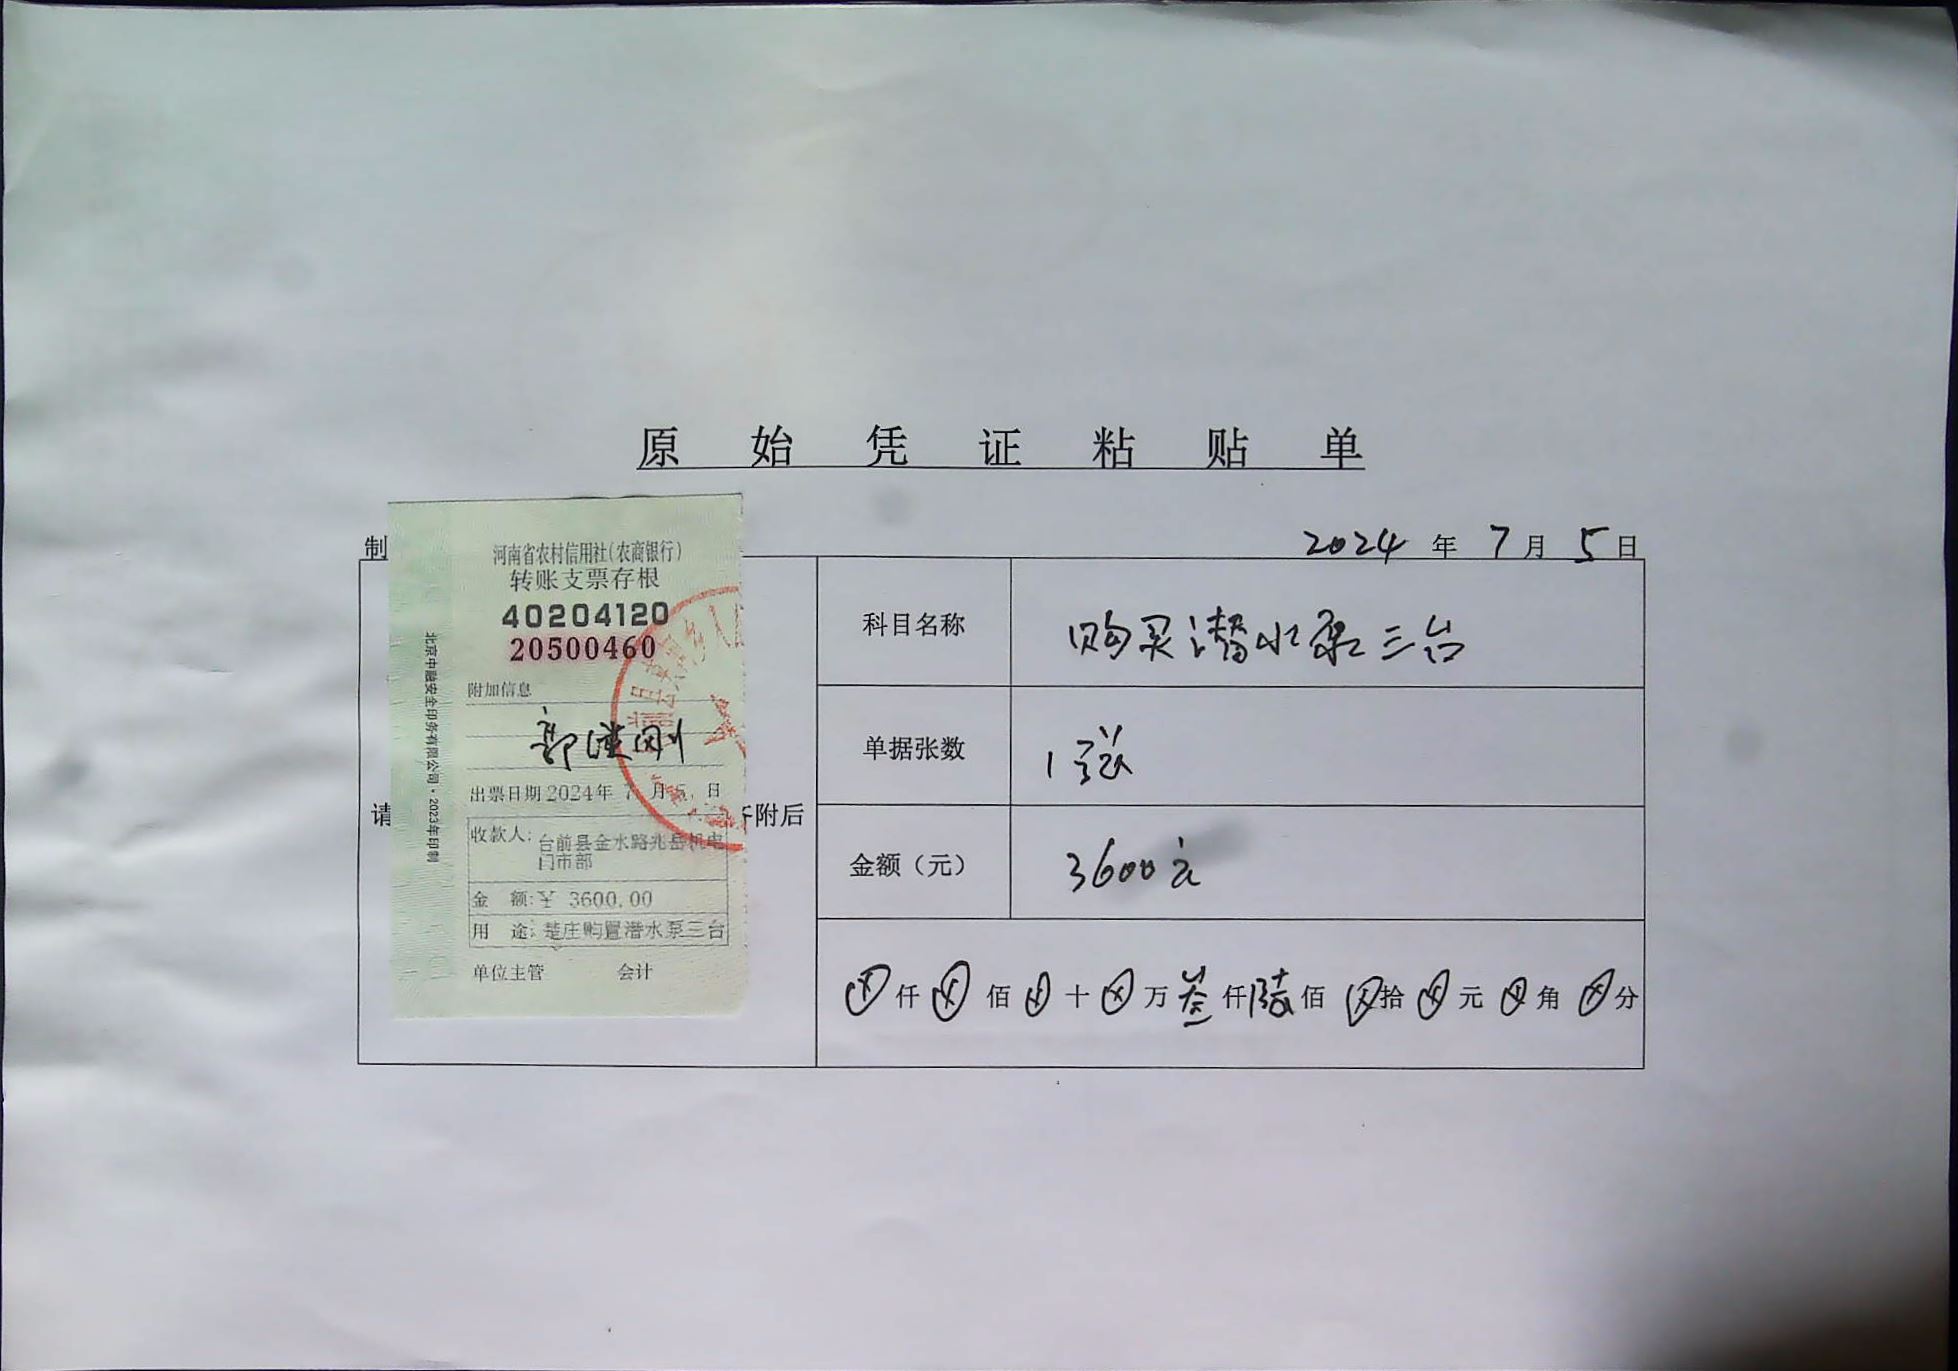 原始凭证粘贴单
制
2024年7月5日
河南省农村信用社(农商银行)
转账支票存根
40204120
20500460
附加信息
出票日期2024年7月5日
收款人:台前县金水路兆岳机电
门市部
金 额:¥ 3600.00
用 途:楚庄购置潜水泵三台
单位主管 会计
北京中融安全印务有限公司·2023年印制
请
附后
科目名称 购买潜水泵三台
单据张数 1张
金额（元） 3600元
仟 佰 十 万 叁仟陆佰 拾 元 角 分